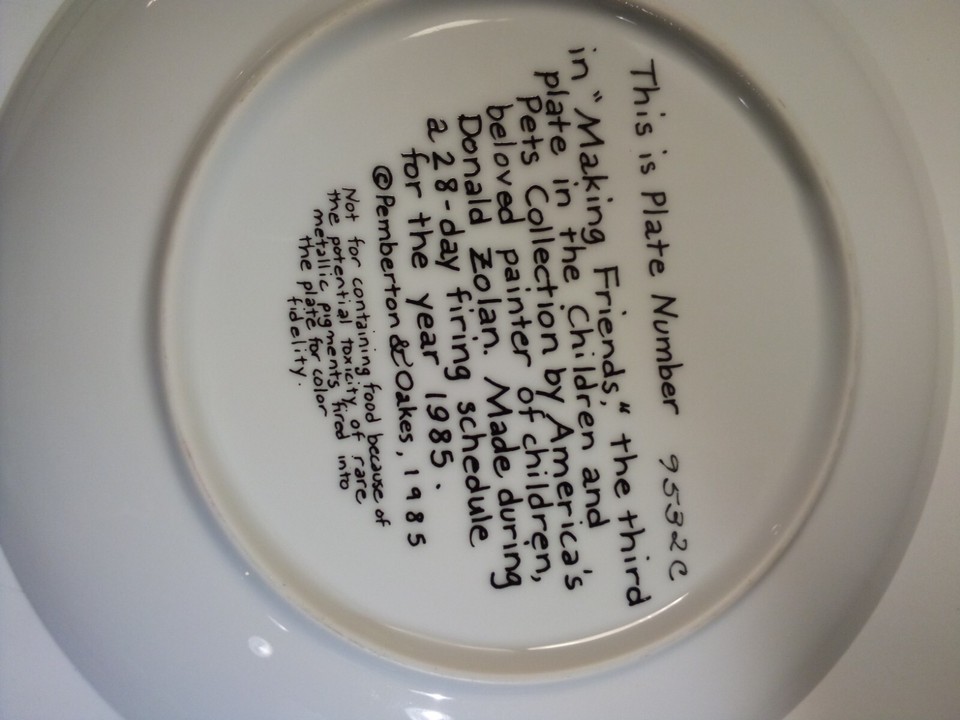 This is Plate Number 9532C
in "Making Friends," the third
plate in the Children and
Pets Collection by America's
beloved painter of children,
Donald Zolan. Made during
a 28-day firing schedule
for the year 1985.
©Pemberton & Oakes, 1985
Not for containing food because of
the potential toxicity of rare
metallic pigments fired into
the plate for color
fidelity.